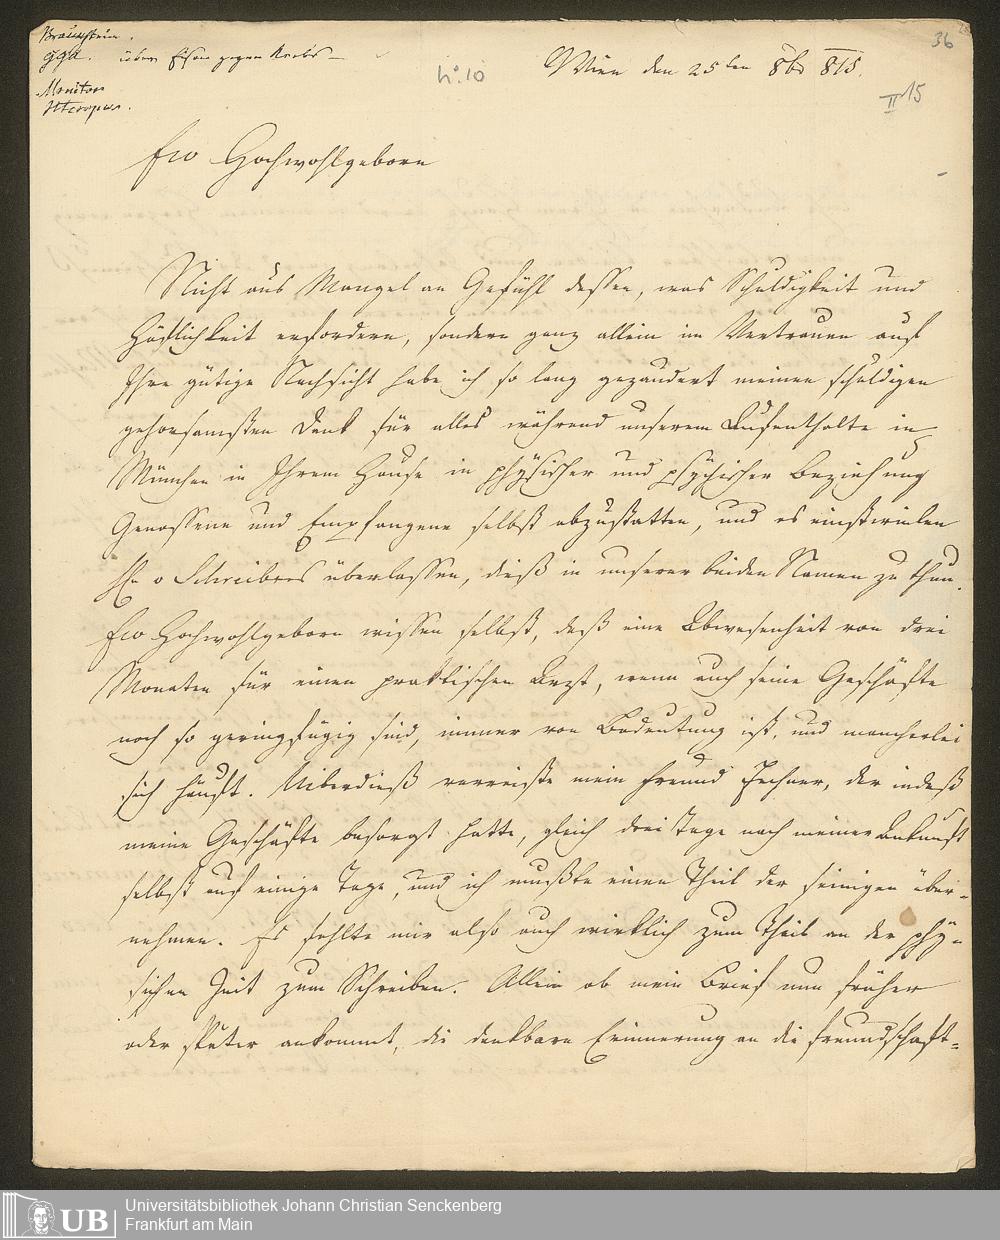 Braunstein.
gga. über Eisen gegen Krebs –
Monitor
No. 10
Wien den 25ten 8br 815.
36
II 15
Ew Hochwohlgeborn
Nicht aus Mangel an Gefühl dessen, was Schuldigkeit und
Höflichkeit erfordern, sondern ganz allein im Vertrauen auf
Ihre gütige Nachsicht habe ich so lang gezaudert meinen schuldigen
gehorsamsten Dank für alles während unserem Aufenthalte in
München in Ihrem Hause in physischer und psychischer Beziehung
Genossene und Empfangene selbst abzustatten, und es einstweilen
H v Schreibers überlassen, dieß in unserer beiden Namen zu thun.
Ew Hochwohlgeborn wissen selbst, daß eine Abwesenheit von drei
Monaten für einen praktischen Arzt, wenn auch seine Geschäfte
noch so geringfügig sind, immer von Bedeutung ist, und mancherlei
sich häuft. Uiberdieß verreiste mein Freund, der indeß
meine Geschäfte besorgt hatte, gleich drei Tage nach meiner Ankunft
selbst auf einige Tage, und ich mußte einen Theil der seinigen über-
nehmen. Es fehlte mir also auch wirklich zum Theil an der phy-
sischen Zeit zum Schreiben. Allein ob mein Brief nun früher
oder später ankommt, die dankbare Erinnerung an die freundschaft-
UB
Universitätsbibliothek Johann Christian Senckenberg
Frankfurt am Main